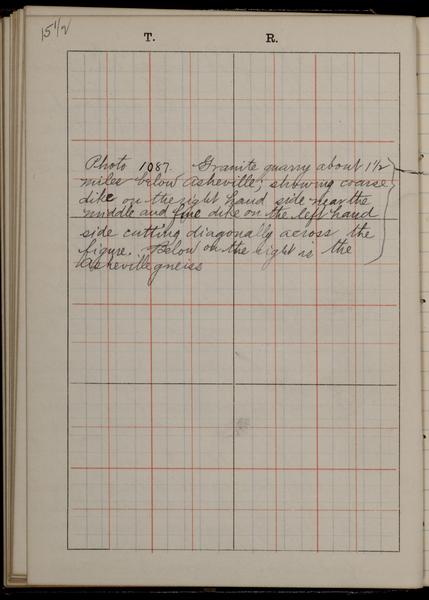 15 1/2
T. R.
Photo 1087. Granite quarry about 1 1/2
miles below Asheville; showing coarse
dike on the right hand side near the
middle and fine dike on the left hand
side cutting diagonally across the
figure. Below on the right is the
Asheville gneiss